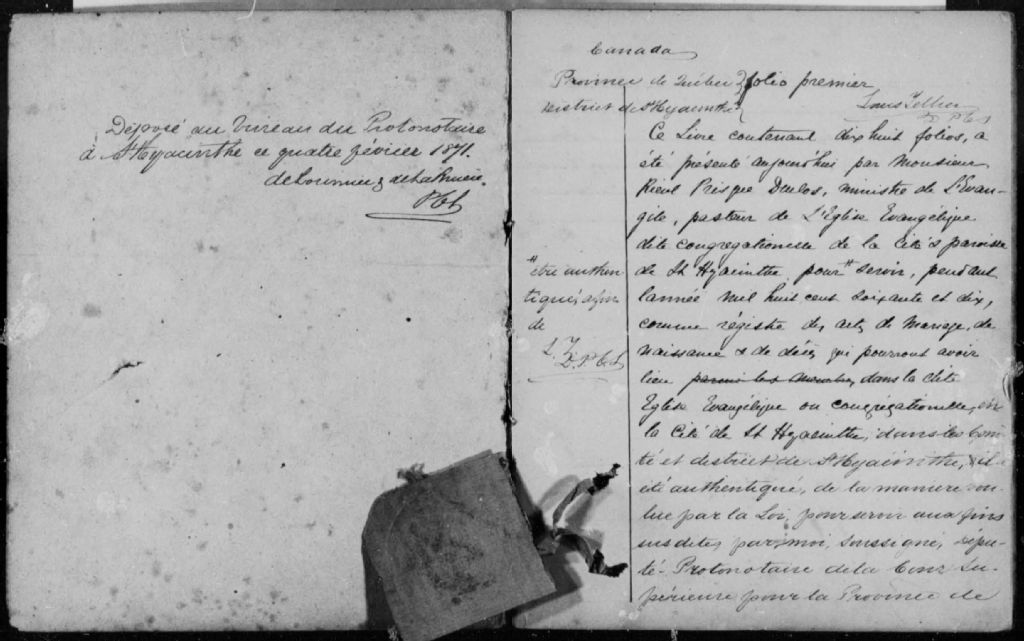 Déposé au Bureau du Protonotaire
à St Hyacinthe ce quatre février 1871.
P.C.S.
Canada
Province de Québec } folio premier
District de St Hyacinthe }
Louis Tellier
D. P.C.S
Ce Livre contenant dix huit folios, a
été présenté aujourd'hui par Monsieur
Rieul Prisque Duclos, ministre de L'Evan-
gile, pasteur de L'Eglise Evangélique
dite congregationelle de la Cité & paroisse
de St Hyacinthe, pour # servir, pendant
l'année mil huit cent soixante et dix,
comme régistre des actes de Mariage, de
Naissance & de décès qui pourront avoir
lieu parmi les membres, dans la dite
Eglise Evangélique ou congrégationelle, en
la Cité de St Hyacinthe, dans les Com-
té et district de St Hyacinthe, & il a
été authentiqué, de la manière vou-
lue par la Loi, pour servir aux fins
susdites, par moi, soussigné, dépu-
té-Protonotaire de la Cour Su-
périeure pour la Province de
# être authen
tiqué, afin
de
L. T.
D. P.C.S